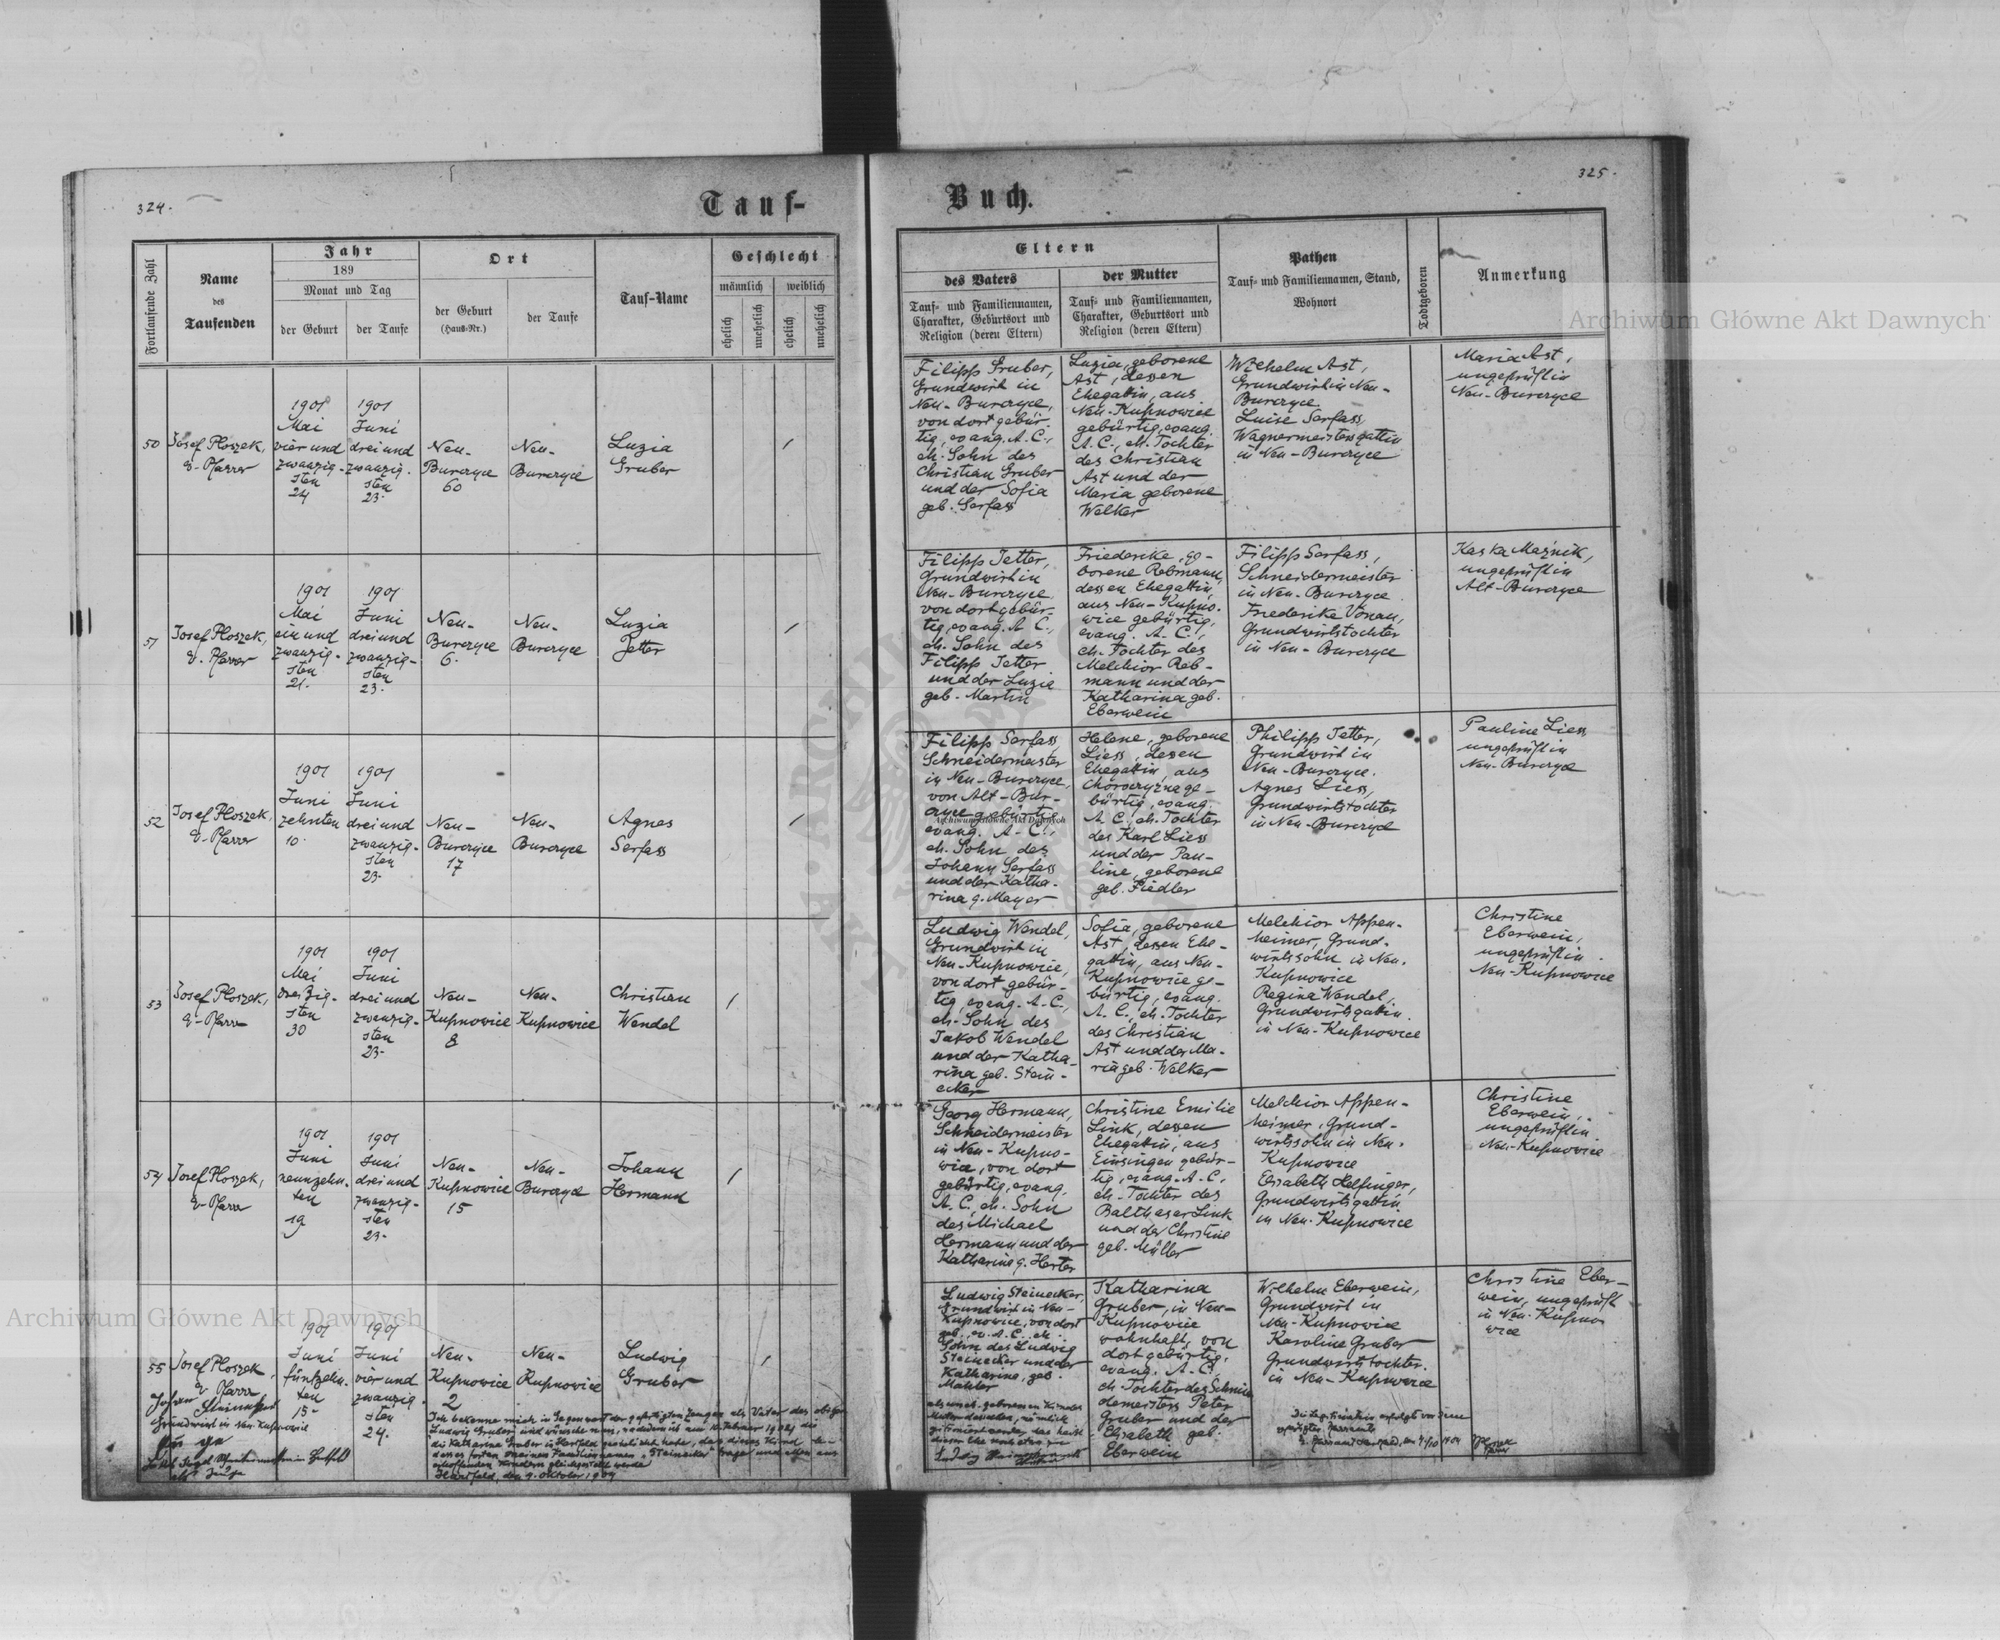 324.
325.
Tauf-
Buch.
Fortlaufende Zahl
Name
des
Taufenden
Jahr
189
Monat und Tag
der Geburt
der Taufe
Ort
der Geburt
(Haus-Nr.)
der Taufe
Tauf-Name
Geschlecht
männlich
weiblich
ehelich
unehelich
ehelich
unehelich
Eltern
des Vaters
Tauf- und Familiennamen,
Charakter, Geburtsort und
Religion (deren Eltern)
der Mutter
Tauf- und Familiennamen,
Charakter, Geburtsort und
Religion (deren Eltern)
Pathen
Tauf- und Familiennamen, Stand,
Wohnort
Todtgeboren
Anmerkung
50
Josef Ploszek,
e. Pfarrer
1901
Mai
vier und
zwanzig-
sten
24
1901
Juni
drei und
zwanzig-
sten
23.
Neu-
Burczyce
60
Neu-
Burczyce
Luzia
Gruber
/
Filipp Gruber,
Grundwirt in
Neu-Burczyce,
von dort gebür-
tig, evang. A.C.,
eh. Sohn des
Christian Gruber
und der Sofia
geb. Serfass
Luzia, geborene
Ast, dessen
Ehegattin, aus
Neu-Kupnowice
gebürtig, evang.
A.C., eh. Tochter
des Christian
Ast und der
Maria geborene
Welker
Wilhelm Ast,
Grundwirt in Neu-
Burczyce.
Luise Serfass,
Wagnermeistersgattin
in Neu-Burczyce
Maria Ast,
ungeprüft in
Neu-Burczyce
51
Josef Ploszek,
e. Pfarrer
1901
Mai
ein und
zwanzig-
sten
21.
1901
Juni
drei und
zwanzig-
sten
23.
Neu-
Burczyce
6.
Neu-
Burczyce
Luzia
Jetter
/
Filipp Jetter,
Grundwirt in
Neu-Burczyce,
von dort gebür-
tig, evang. A.C.,
eh. Sohn des
Filipp Jetter
und der Luzie
geb. Martin
Friedericke, ge-
borene Rebmann,
dessen Ehegattin,
aus Neu-Kupno-
wice gebürtig,
evang. A.C.,
eh. Tochter des
Melchior Reb-
mann und der
Katharina geb.
Eberwein
Filipp Serfass,
Schneidermeister
in Neu-Burczyce.
Friederike Vonau,
Grundwirtstochter
in Neu-Burczyce
Kaska Maźnik,
ungeprüft in
Alt-Burczyce
52
Josef Ploszek,
e. Pfarrer
1901
Juni
zehnten
10.
1901
Juni
drei und
zwanzig-
sten
23.
Neu-
Burczyce
17
Neu-
Burczyce
Agnes
Serfass
/
Filipp Serfass,
Schneidermeister
in Neu-Burczyce,
von Alt-Bur-
czyce gebürtig,
evang. A.C.,
eh. Sohn des
Johann Serfass
und der Katha-
rina g. Mayer
Helene, geborene
Liess, dessen
Ehegattin, aus
ge-
bürtig, evang.
A.C., eh. Tochter
des Karl Liess
und der Pau-
line, geborene
geb. Fiedler
Philipp Jetter,
Grundwirt in
Neu-Burczyce.
Agnes Liess,
Grundwirtstochter
in Neu-Burczyce
Pauline Liess,
ungeprüft in
Neu-Burczyce
53
Josef Ploszek,
e. Pfarrer
1901
Mai
dreizig-
sten
30
1901
Juni
drei und
zwanzig-
sten
23.
Neu-
Kupnowice
8
Neu-
Kupnowice
Christian
Wendel
/
Ludwig Wendel,
Grundwirt in
Neu-Kupnowice,
von dort gebür-
tig, evang. A.C.,
eh. Sohn des
Jakob Wendel
und der Katha-
rina geb. Stein-
ecker
Sofia, geborene
Ast, dessen Ehe-
gattin, aus Neu-
Kupnowice ge-
bürtig, evang.
A.C., eh. Tochter
des Christian
Ast und der Ma-
ria geb. Welker
Melchior Appen-
heimer, Grund-
wirtssohn in Neu-
Kupnowice
Regina Wendel,
Grundwirtsgattin
in Neu-Kupnowice
Christine
Eberwein,
ungeprüft in
Neu-Kupnowice
54
Josef Ploszek,
e. Pfarrer
1901
Juni
neunzehn-
ten
19
1901
Juni
drei und
zwanzig-
sten
23.
Neu-
Kupnowice
15
Neu-
Burczyce
Johann
Hermann
/
Georg Hermann,
Schneidermeister
in Neu-Kupno-
wice, von dort
gebürtig, evang.
A.C., eh. Sohn
des Michael
Hermann und der
Katharina g. Herter
Christine Emilie
Link, dessen
Ehegattin, aus
Einsingen gebür-
tig, evang. A.C.,
eh. Tochter des
Balthasar Link
und der Christine
geb. Müller
Melchior Appen-
heimer, Grund-
wirtssohn in Neu-
Kupnowice
Elisabeth Helfinger,
Grundwirtsgattin
in Neu-Kupnowice
Christine
Eberwein,
ungeprüft in
Neu-Kupnowice
55
Josef Ploszek,
e. Pfarrer
Grundwirt in Neu Kupnowice
als Zeuge
1901
Juni
fünfzehn-
ten
15.
1901
Juni
vier und
zwanzig-
sten
24.
Neu-
Kupnowice
2
Neu-
Kupnowice
Ludwig
Gruber
/
Ich bekenne mich in Gegenwart der gefertigten Zeugen als Vater des obigen
Ludwig Gruber und wünsche nun, nachdem ich am Februar 1904 die
die Katharina Gruber in Hartfeld geehelicht habe, dass dieses Kind
meinen Familiennamen "Steinecker" trage und allen aus
Kindern gleichgestellt werde
Hartfeld, den 9. Oktober 1904
Ludwig Steinecker,
Grundwirt in Neu-
Kupnowice, von dort
geb., ev. A.C., eh.
Sohn des Ludwig
Steinecker und der
Katharina, geb.
Mahler
Katharina
Gruber, in Neu-
Kupnowice
wohnhaft, von
dort gebürtig,
evang. A.C.,
eh. Tochter des Schnei-
dermeisters Peter
Gruber und der
Elisabeth geb.
Eberwein
Wilhelm Eberwein,
Grundwirt in
Neu-Kupnowice
Karoline Gruber
Grundwirtstochter
in Neu-Kupnowice
Christine Eber-
wein, ungeprüft
in Neu-Kupno-
wice
Archiwum Główne Akt Dawnych
Archiwum Główne Akt Dawnych
Archiwum Główne Akt Dawnych